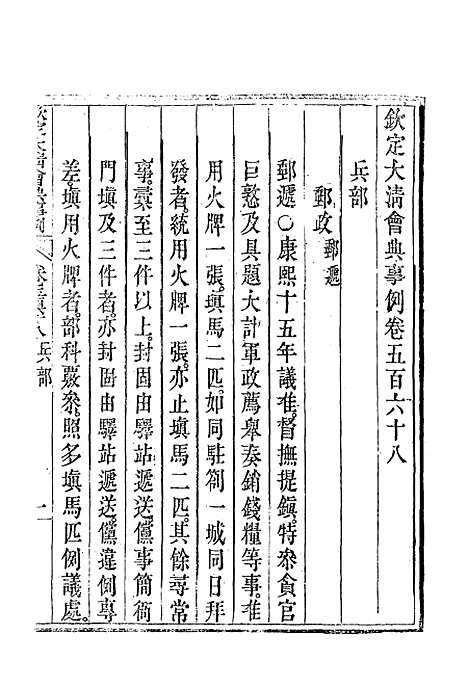 欽定大清會典事例卷五百六十八
兵部
郵政郵遞
郵遞○康熙十五年議准。督撫提鎮。特參貪官
巨憝及具題大計軍政薦舉奏銷錢糧等事。准
用火牌一張。填馬二匹。如同駐劄一城同日拜
發者。統用火牌一張。亦止填馬二匹。其餘尋常
事。彙至三件以上。封固由驛站遞送。儻事簡衙
門填及三件者。亦封固由驛站遞送。儻違例專
差。填用火牌者。部科覈參。照多填馬匹例議處。
兵部